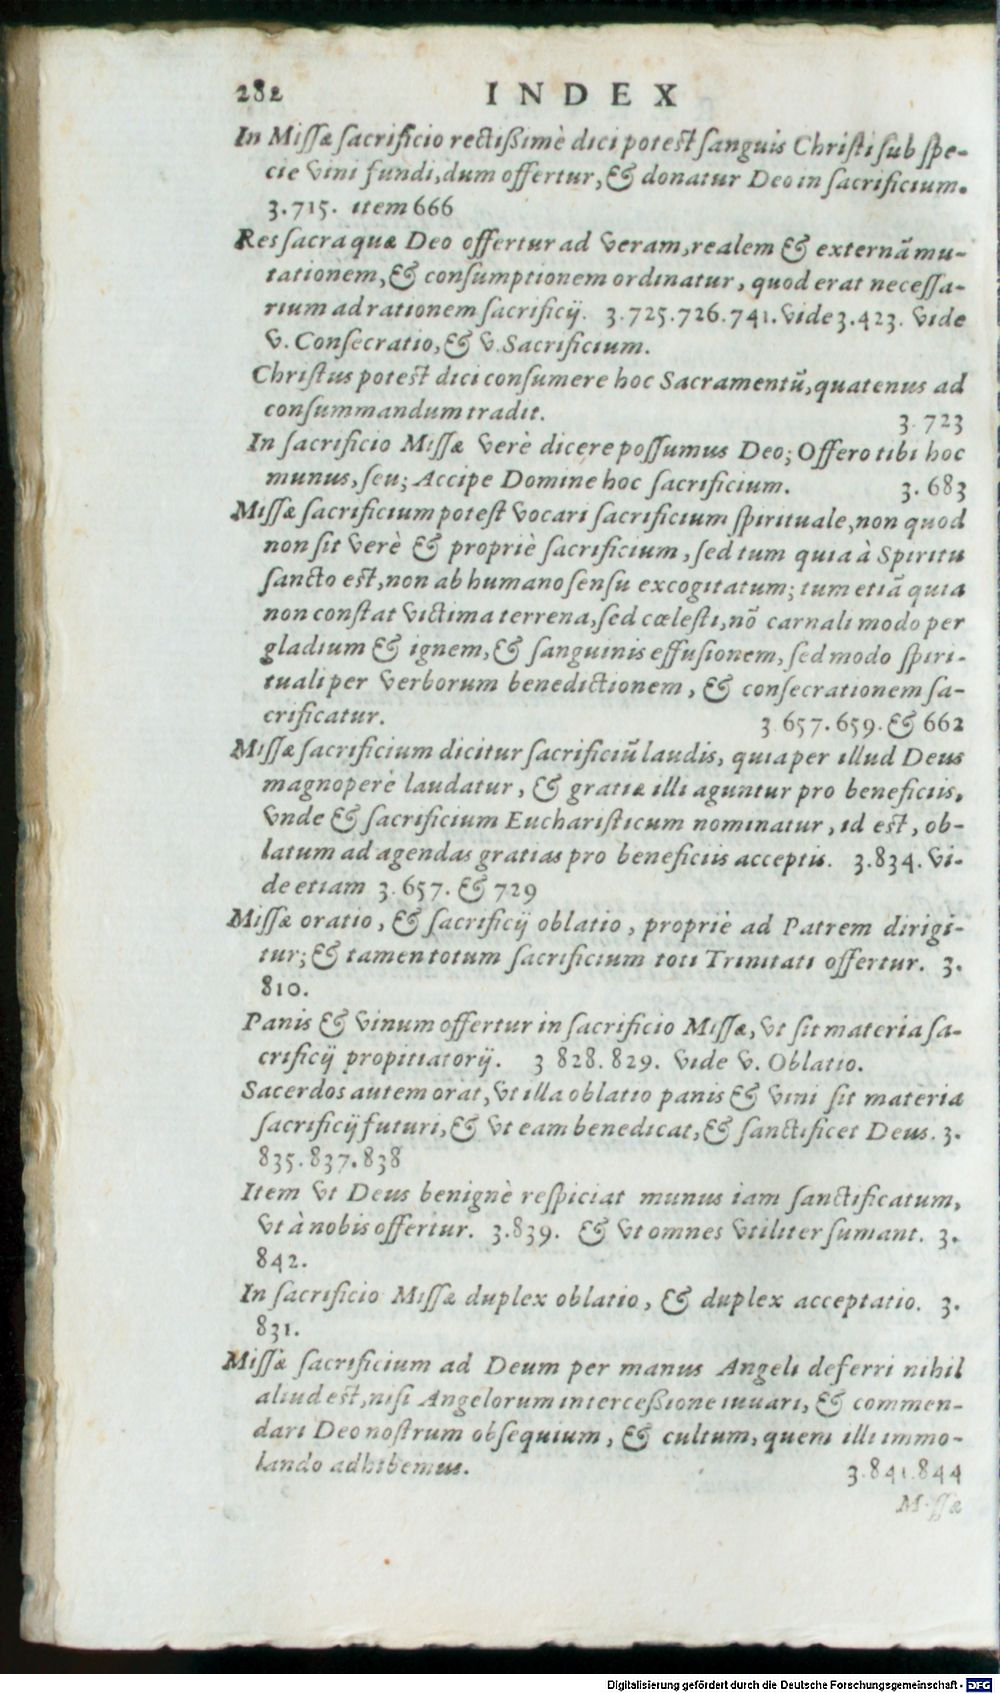 282 INDEX
In Missæ sacrificio rectißimè dici potest sanguis Christi sub spe-
cie vini fundi, dum offertur, & donatur Deo in sacrificium.
3.715. item 666
Res sacra quæ Deo offertur ad veram, realem & externā mu-
tationem, & consumptionem ordinatur, quod erat necessa-
rium ad rationem sacrificij. 3.725.726.741. vide 3.423. vide
v. Consecratio, & v. Sacrificium.
Christus potest dici consumere hoc Sacramentū, quatenus ad
consummandum tradit. 3.723
In sacrificio Missæ verè dicere possumus Deo; Offero tibi hoc
munus, seu; Accipe Domine hoc sacrificium. 3.683
Missæ sacrificium potest vocari sacrificium spirituale, non quod
non sit verè & propriè sacrificium, sed tum quia à Spiritu
sancto est, non ab humano sensu excogitatum; tum etiā quia
non constat victima terrena, sed cœlesti, nō carnali modo per
gladium & ignem, & sanguinis effusionem, sed modo spiri-
tuali per verborum benedictionem, & consecrationem sa-
crificatur. 3.657.659. & 662
Missæ sacrificium dicitur sacrificiū laudis, quia per illud Deus
magnoperè laudatur, & gratiæ illi aguntur pro beneficiis.
Vnde & sacrificium Eucharisticum nominatur, id est, ob-
latum ad agendas gratias pro beneficiis acceptis. 3.834. Vi-
de etiam 3.657. & 729
Missæ oratio, & sacrificij oblatio, propriè ad Patrem dirigi-
tur; & tamen totum sacrificium toti Trinitati offertur. 3.
810.
Panis & vinum offertur in sacrificio Missæ, vt sit materia sa-
crificij propitiatorij. 3 828.829. vide v. Oblatio.
Sacerdos autem orat, vt illa oblatio panis & vini sit materia
sacrificij futuri, & vt eam benedicat, & sanctificet Deus. 3.
835.837.838
Item vt Deus benignè respiciat munus iam sanctificatum,
vt à nobis offertur. 3.839. & vt omnes vtiliter sumant. 3.
842.
In sacrificio Missæ duplex oblatio, & duplex acceptatio. 3.
831.
Missæ sacrificium ad Deum per manus Angeli deferri nihil
aliud est, nisi Angelorum interceßione iuuari, & commen-
dari Deo nostrum obsequium, & cultum, quem illi immo-
lando adhibemus. 3.841.844
Missæ
Digitalisierung gefördert durch die Deutsche Forschungsgemeinschaft - DFG